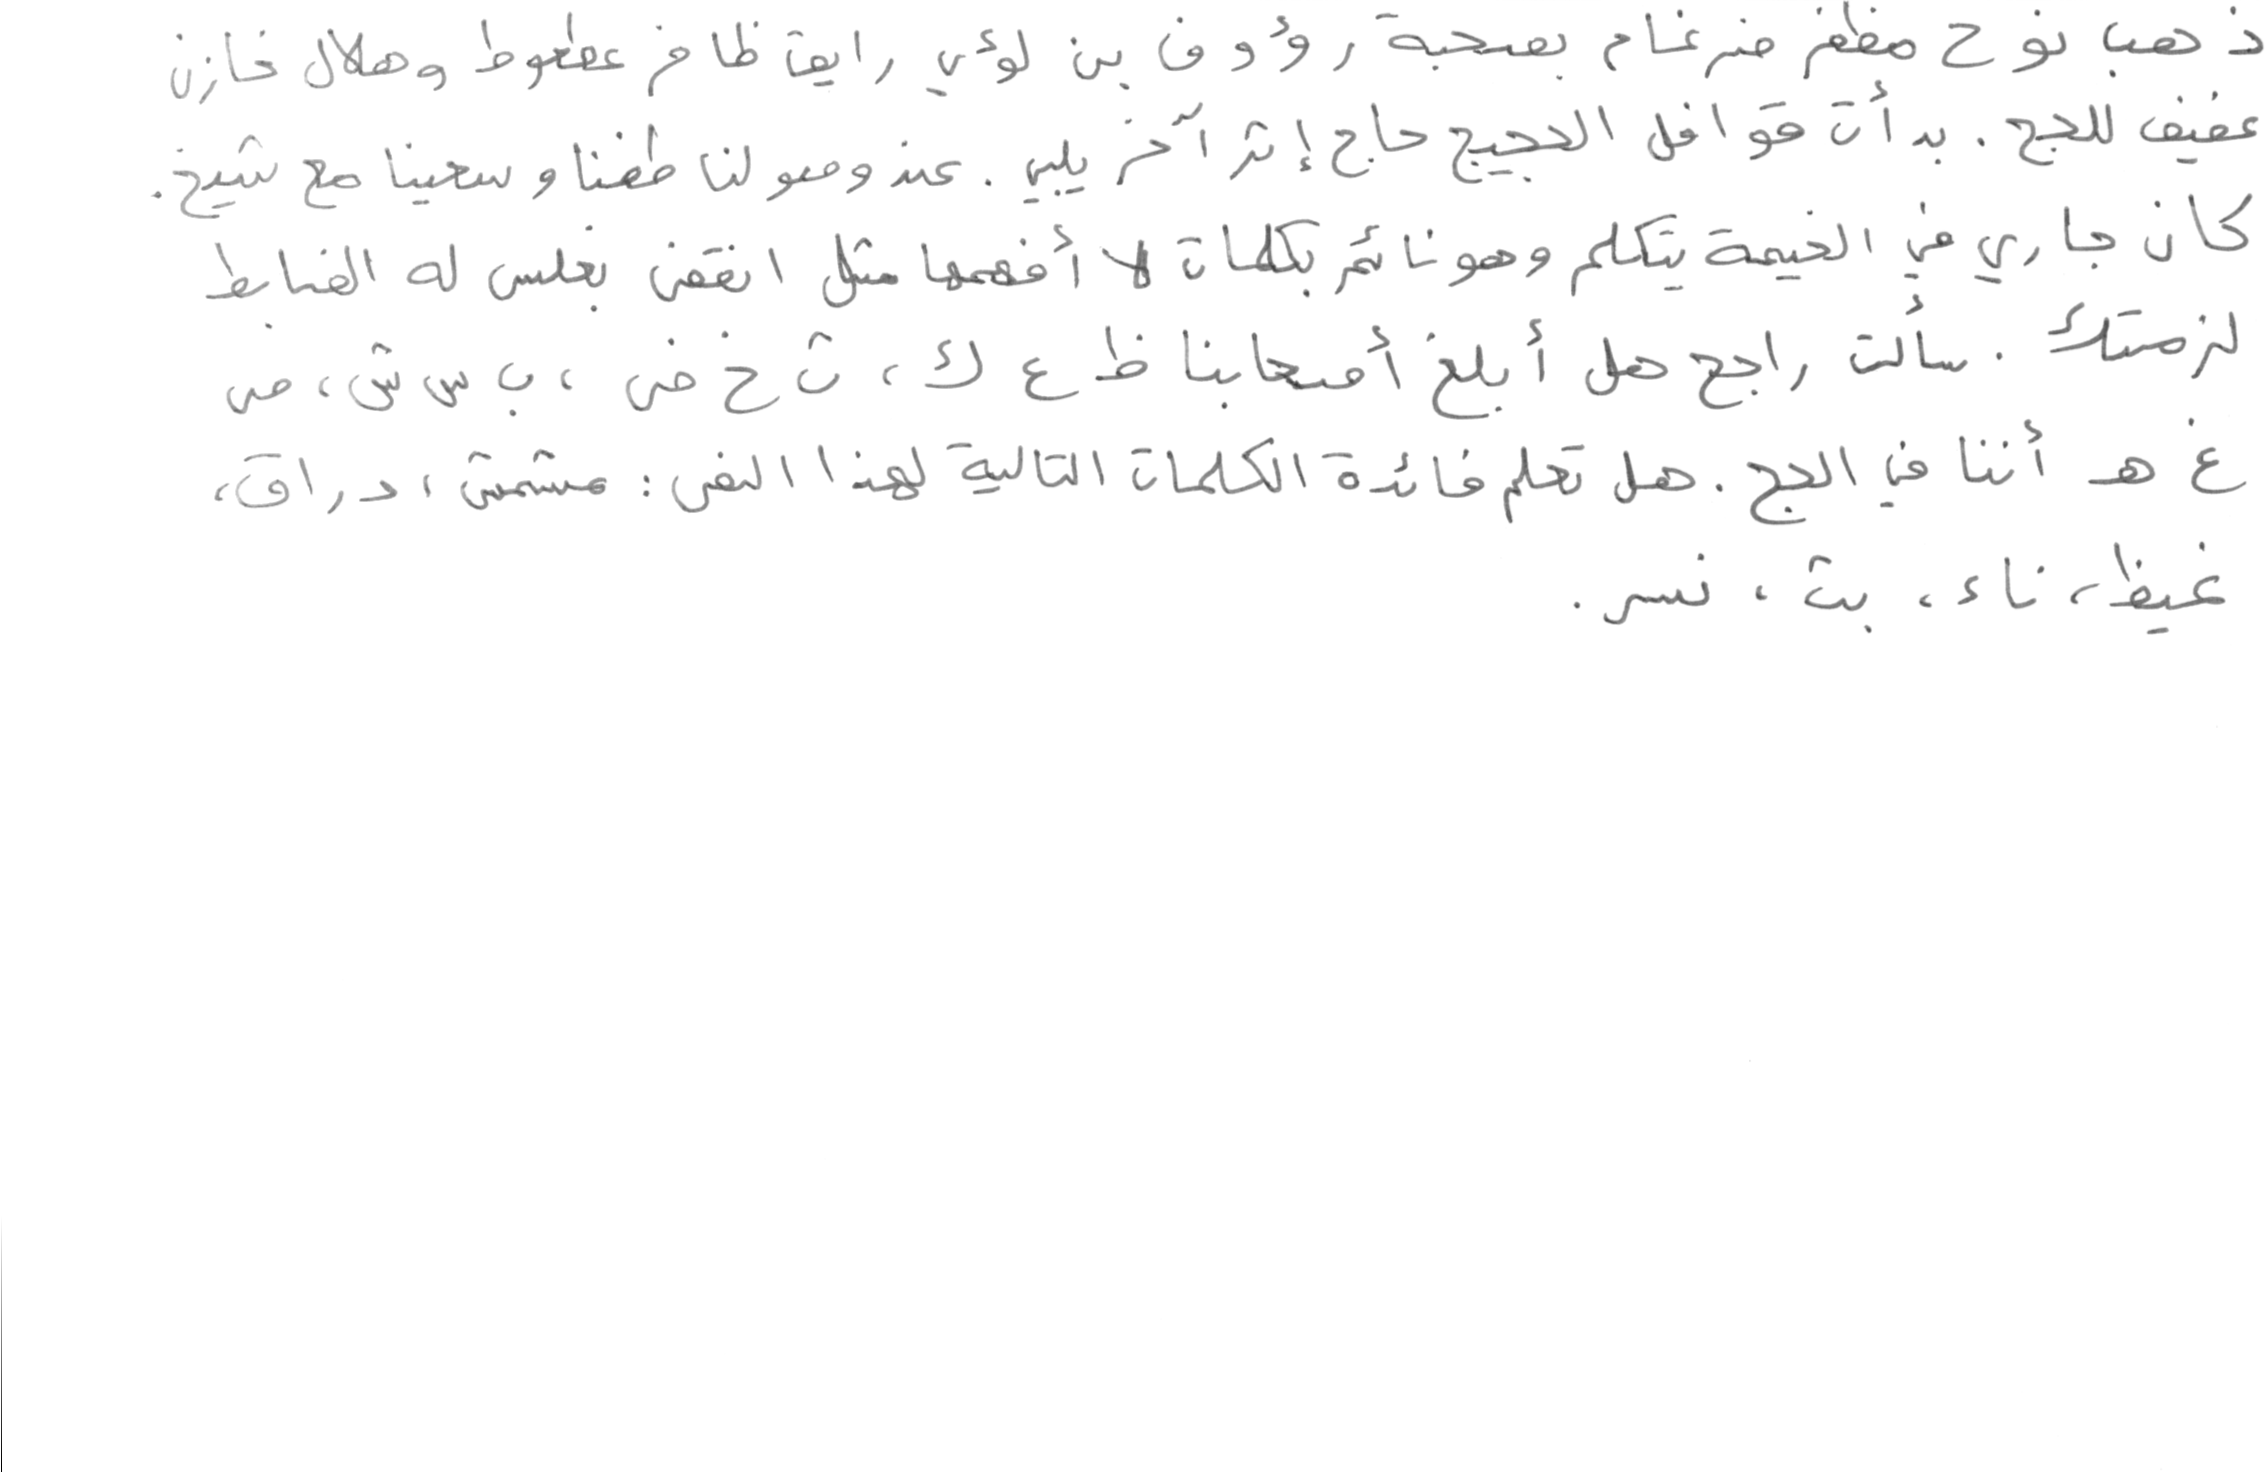 ذهب نوح مظفر ضرغام بصحبة رؤوف بن لؤي رايق ظافر عطعوط وهلال خازن
عفيف للحج . بدأت قوافل الحجيج حاج إثر آخر يلبي . عند وصولنا طفنا وسعينا مع شيخ .
كان جاري في الخيمة يتكلم وهو نائم بكلمات لا أفهمها مثل انقض بغلس له الضابط
لزمتك . سألت راجح هل أبلغ أصحابنا ظ ع ك ، ث خ ض ، ب س ش ، ص
غ هـ أننا في الحج . هل تعلم فائدة الكلمات التالية لهذا النص : مشمش ، دراق ،
غيظ ، ناء ، بث ، نسر .